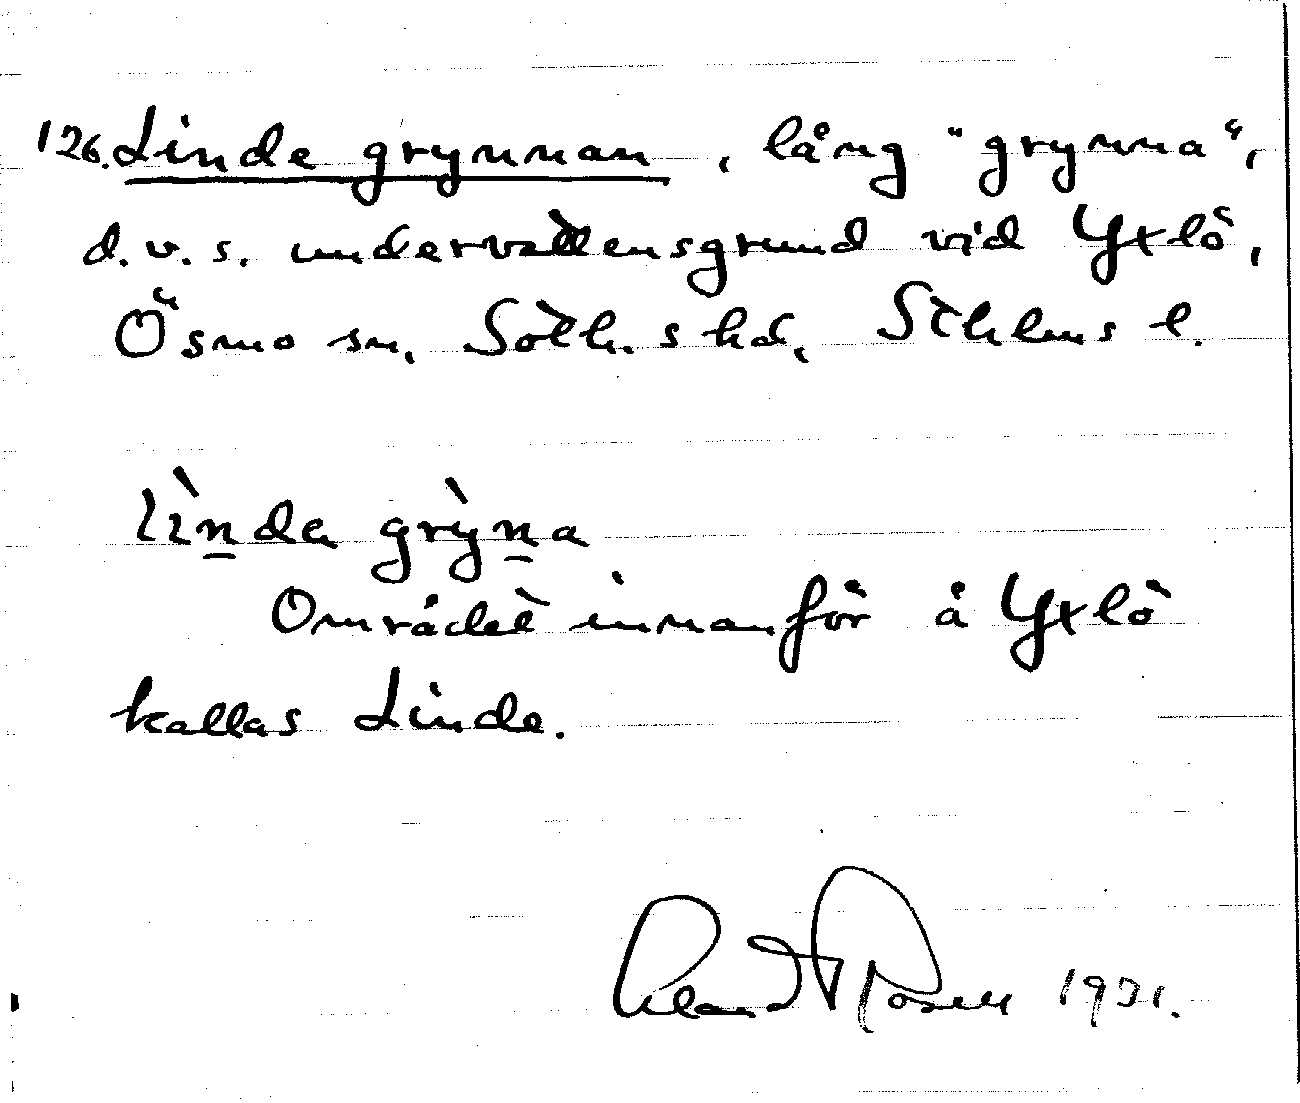 126. Linde grynnan, lång "grynna",
d.v.s. undervattensgrund vid Yxlö,
Ösmo sn, Soth. s hd, Sthlms l.
lìnda grỳna
Området innanför å Yxlö
kallas Linde.
1931.